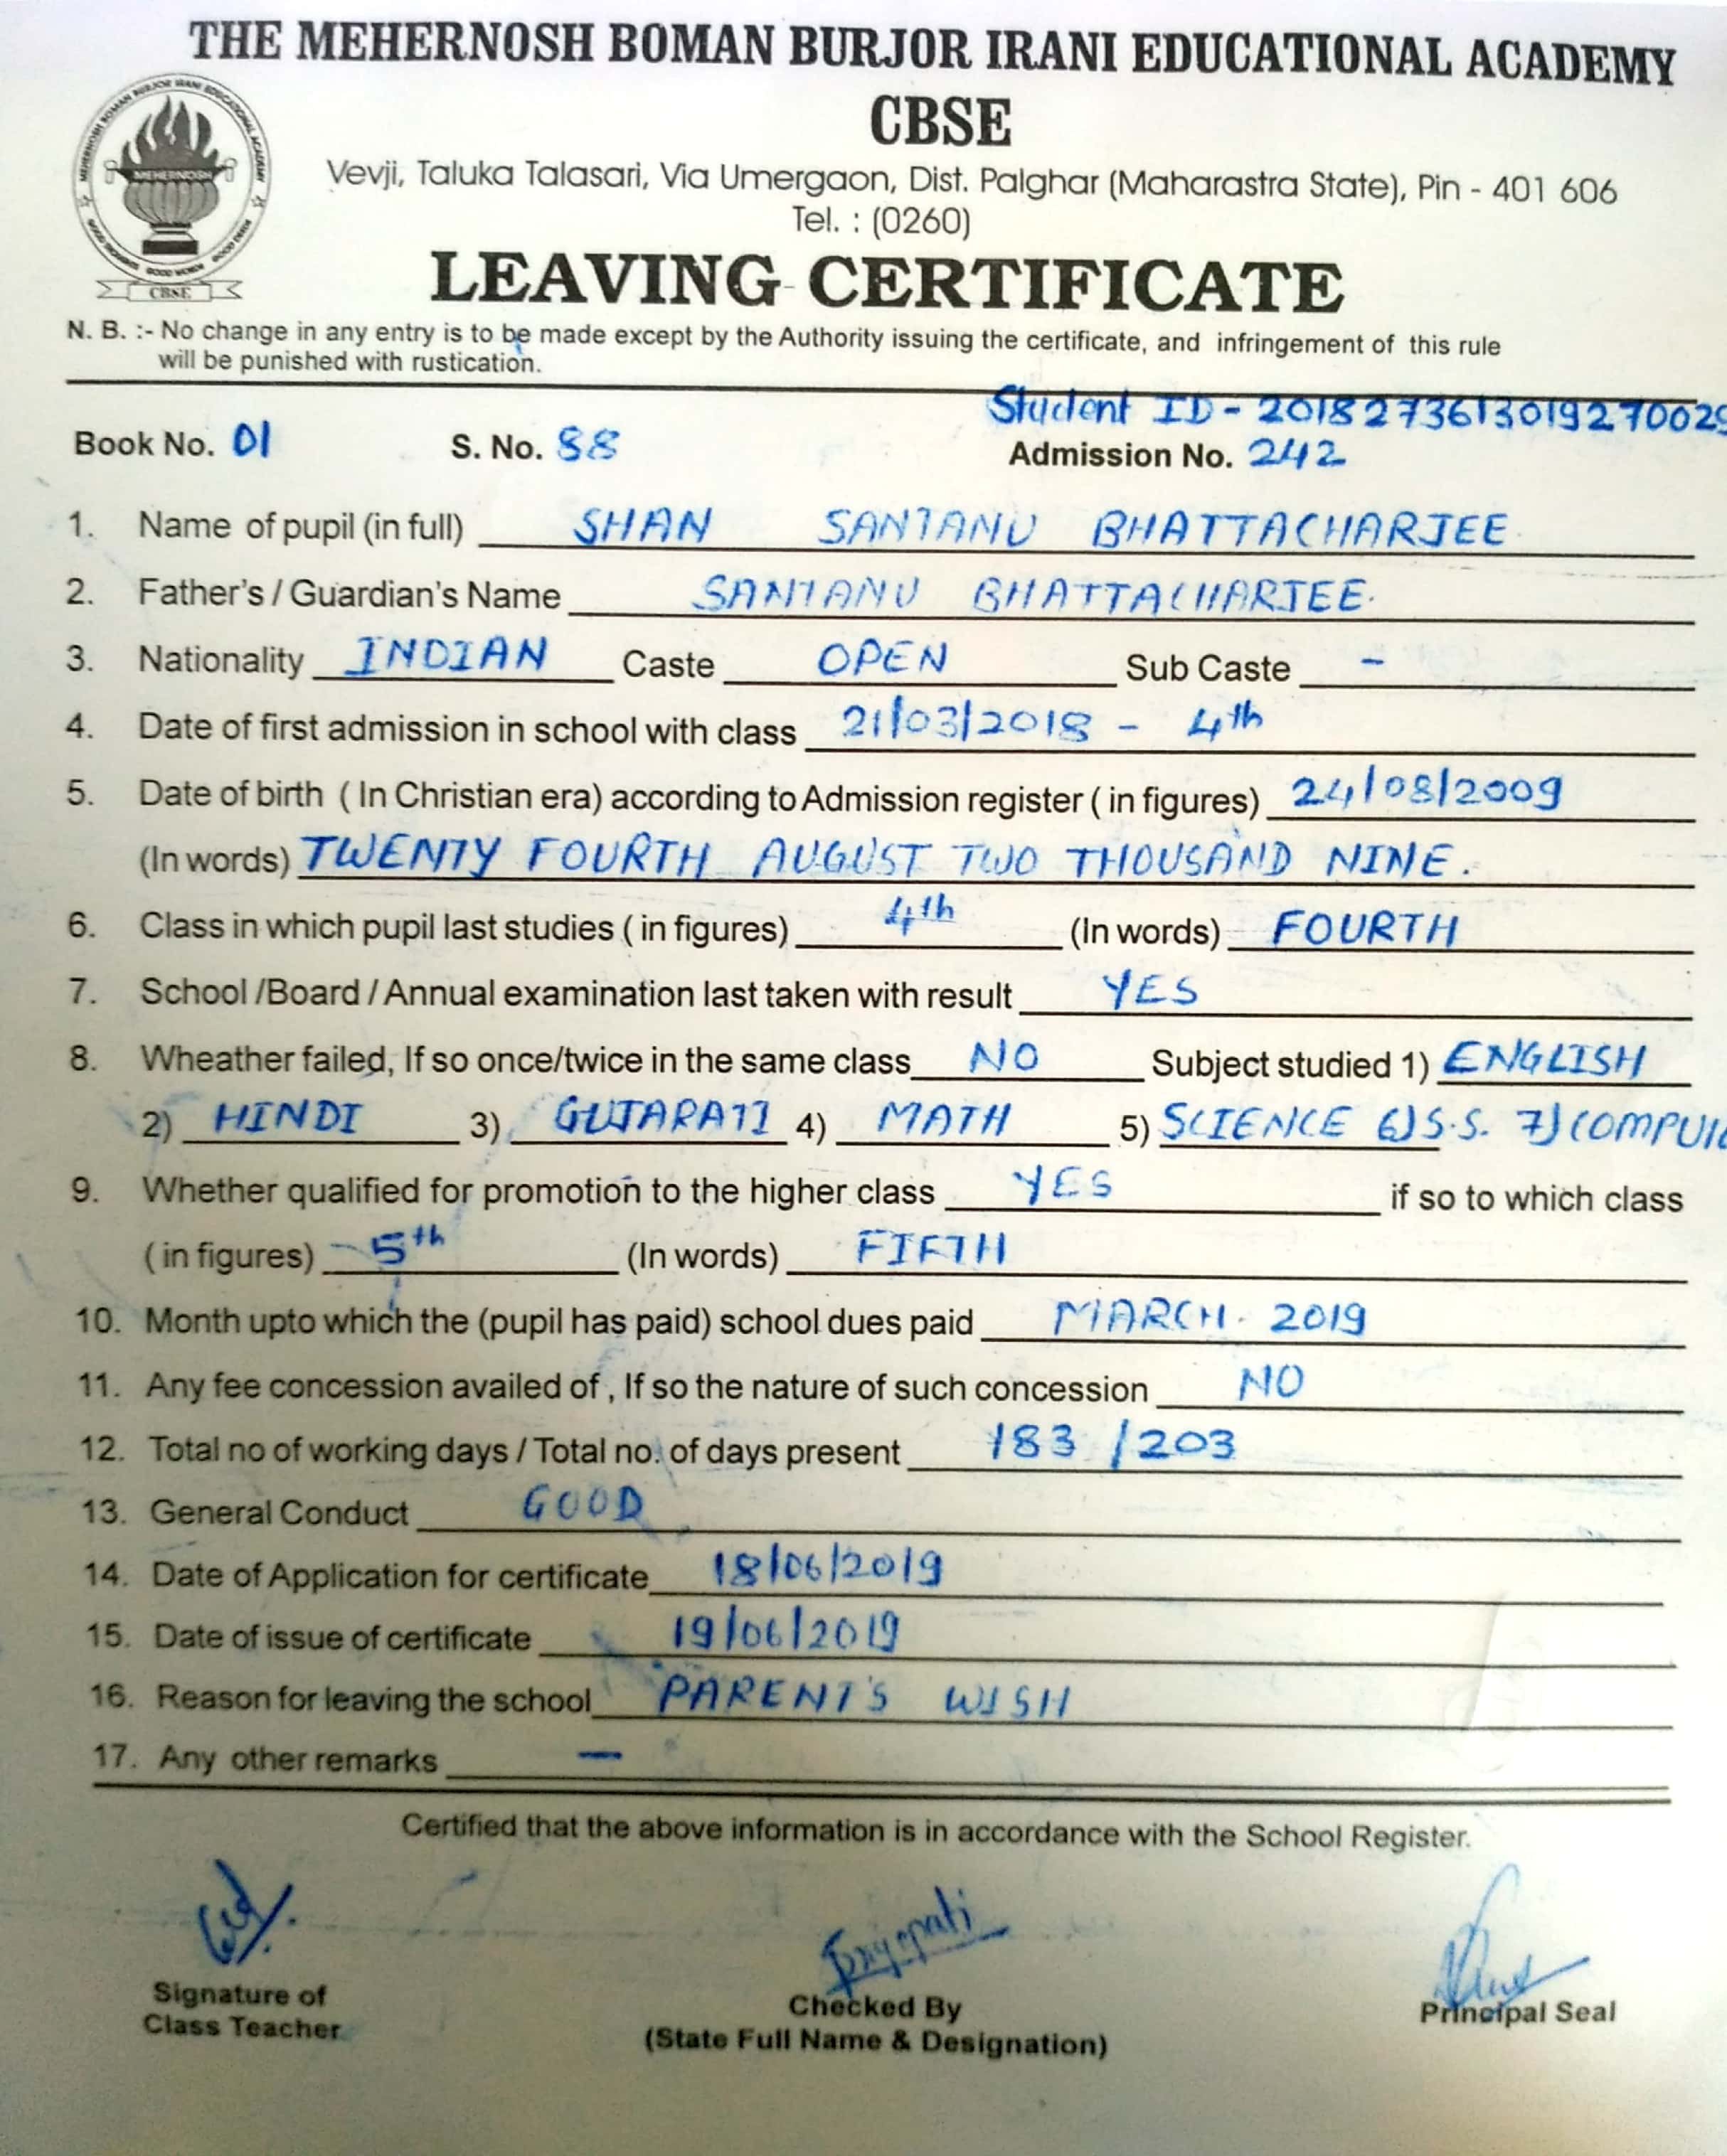 THE MEHERNOSH BOMAN BURJOR IRANI EDUCATIONAL ACADEMY
CBSE
MEHERNOSH BOMAN BURJOR IRANI EDUCATIONAL ACADEMY
MEHERNOSH
GOOD THOUGHTS GOOD WORDS GOOD DEEDS
CBSE
Vevji, Taluka Talasari, Via Umergaon, Dist. Palghar (Maharastra State), Pin - 401 606
Tel. : (0260)
LEAVING CERTIFICATE
N. B. :- No change in any entry is to be made except by the Authority issuing the certificate, and infringement of this rule
will be punished with rustication.
Student ID - 2018273613019270029
Book No. 01 S. No. 88 Admission No. 242
1. Name of pupil (in full) SHAN SANTANU BHATTACHARJEE
2. Father's / Guardian's Name SANTANU BHATTACHARJEE.
3. Nationality INDIAN Caste OPEN Sub Caste -
4. Date of first admission in school with class 21/03/2018 - 4th
5. Date of birth ( In Christian era) according to Admission register ( in figures) 24/08/2009
(In words) TWENTY FOURTH AUGUST TWO THOUSAND NINE.
6. Class in which pupil last studies ( in figures) 4th (In words) FOURTH
7. School /Board / Annual examination last taken with result YES
8. Wheather failed, If so once/twice in the same class NO Subject studied 1) ENGLISH
2) HINDI 3) GUJARATI 4) MATH 5) SCIENCE 6) S.S. 7) COMPUTE
9. Whether qualified for promotion to the higher class YES if so to which class
( in figures) 5th (In words) FIFTH
10. Month upto which the (pupil has paid) school dues paid MARCH. 2019
11. Any fee concession availed of , If so the nature of such concession NO
12. Total no of working days / Total no. of days present 183 /203
13. General Conduct GOOD
14. Date of Application for certificate 18/06/2019
15. Date of issue of certificate 19/06/2019
16. Reason for leaving the school PARENT'S WISH
17. Any other remarks -
Certified that the above information is in accordance with the School Register.
Signature of
Class Teacher
Checked By
(State Full Name & Designation)
Principal Seal